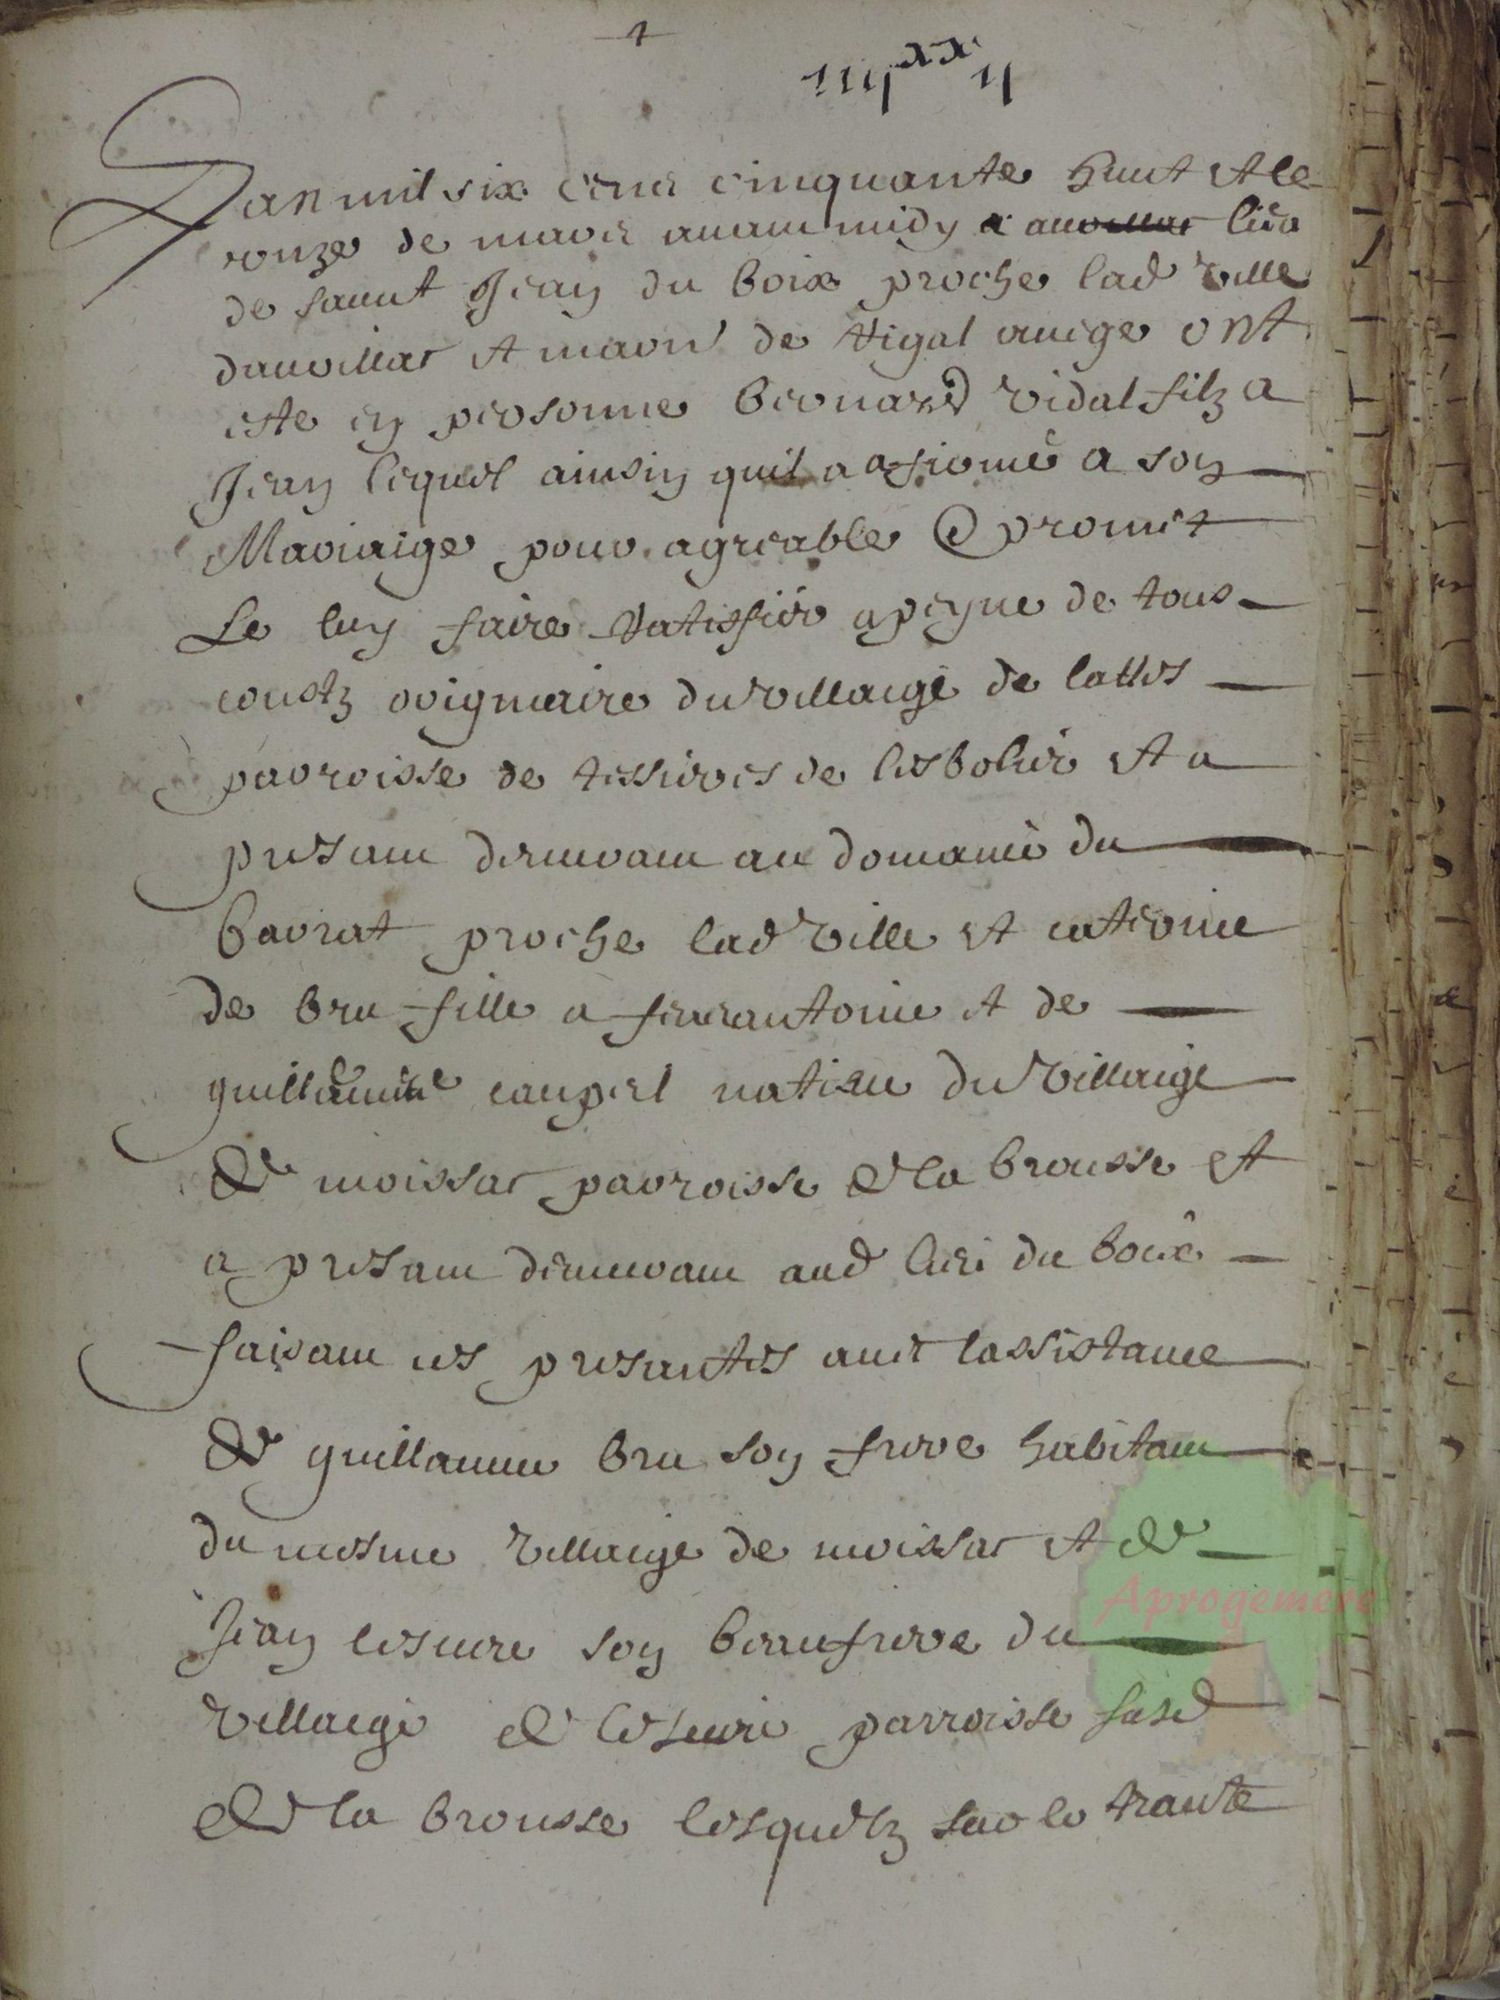 +
iiij xx ij
Lan mil six cens cinquante huict et le
onze de mars avant midy a auvillar lieu
de sainct Jean du boix proche lad ville
dauvillar et maison de Vigal auige ont
este en personne bernard vidal filz a
Jean lequel ainsin quil a afirmé a son
Mariaige pour agreable @ promet
Le luy faire ratiffier a peyne de tous
coustz origniaire du villaige de lattes
parroisse de tessieres de lesbolier et a
presant demurant au domaine du
barrat proche lad ville et caterine
de bru fille a feu antoine et de
guillaumine caupel natieu du villaige
de moissac parroisse de la brousse et
a presant demurant aud lieu du boix
faisant ces presantes avec lassistance
de guillaume bru son frere habitant
du mesme villaige de moissac et de
Jean lesmere son beaufrere du
villaige de parroisse susd
de la brousse lesquelz sur le traute
Aprogemere